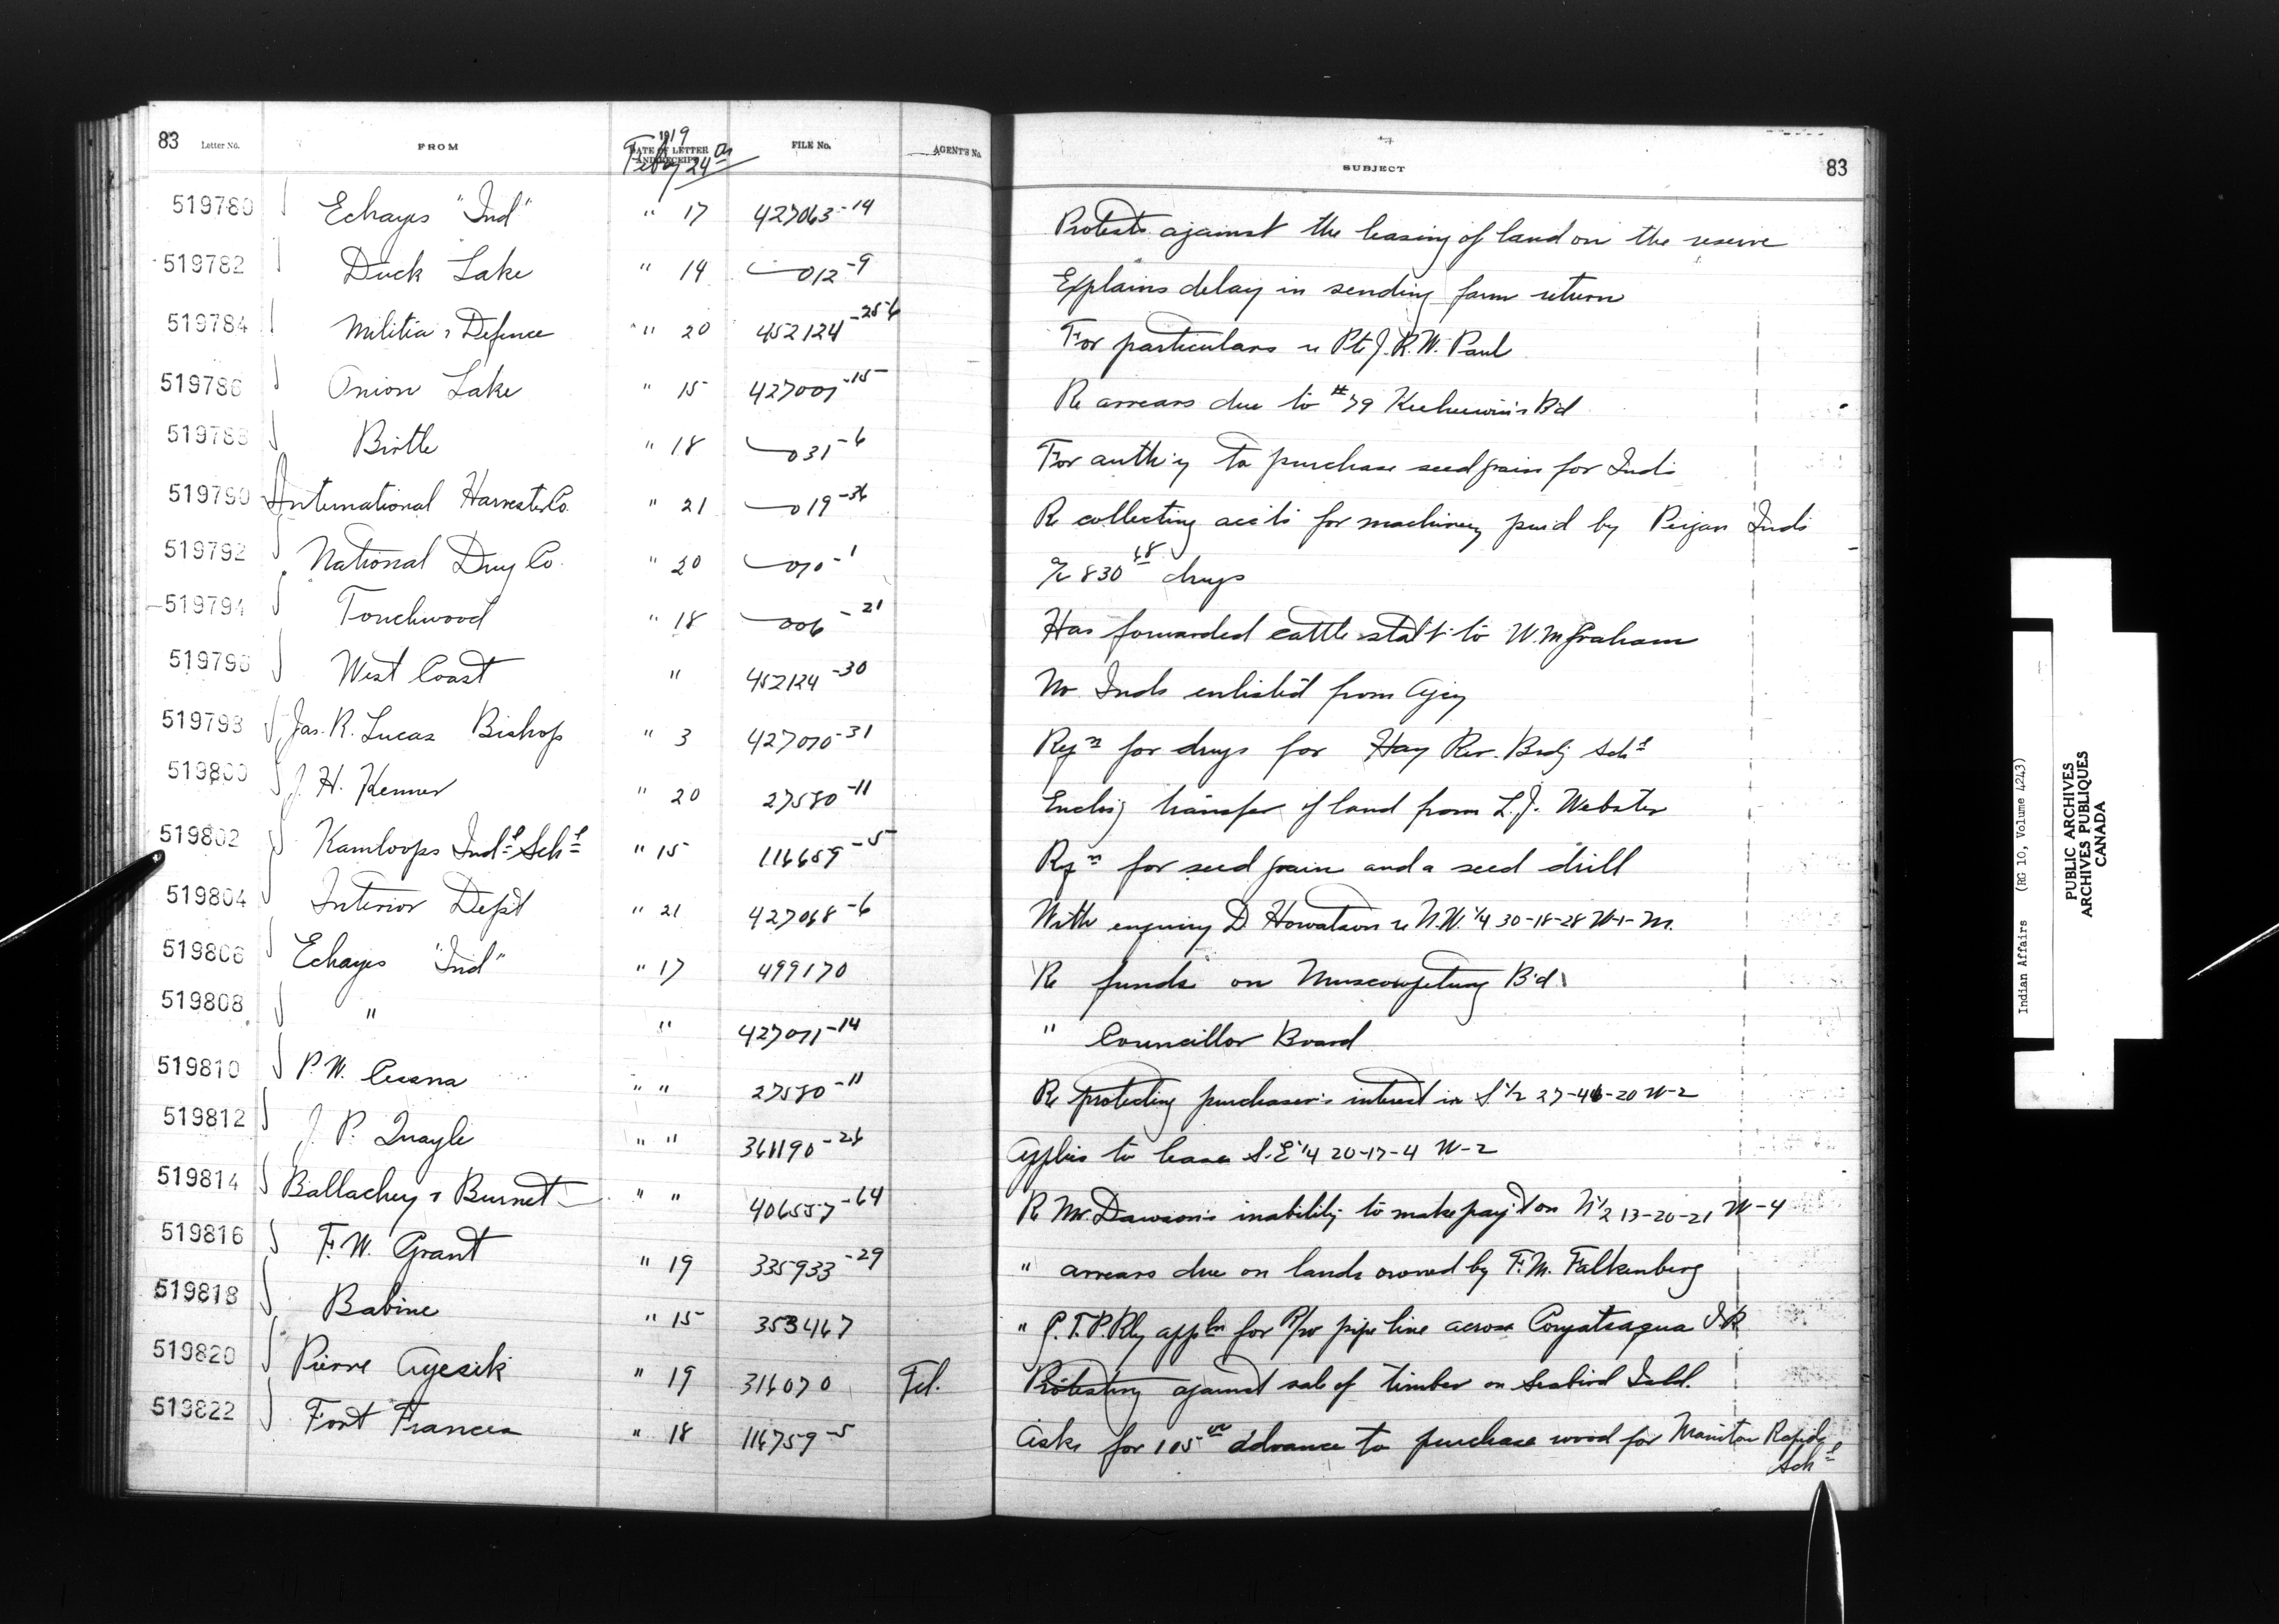 83 Letter No. FROM 1919 DATE OF LETTER AND RECEIPT Feby 24th FILE No. AGENT'S No. SUBJECT 83
519780 Echayes "Ind" " 17 427063-14 Protests against the leasing of land on the reserve
519782 Duck Lake " 14 012-9 Explains delay in sending farm return
519784 Militia & Defence " 20 452124-256 For particulars re Pte J.R.W. Paul
519786 Onion Lake " 15 427001-15 Re arrears due to #79 Keeheewin's Bd
519788 Birtle " 18 031-6 For auth'y to purchase seed grain for Inds
519790 International Harvester Co. " 21 019-36 Re collecting acc'ts for machinery purd by Peigan Inds
519792 National Drug Co. " 20 070-1 a/c 830 68 drugs
519794 Touchwood " 18 006-21 Has forwarded cattle stat't to W.M. Graham
519796 West Coast " 452124-30 No Inds enlisted from Agcy
519798 Jas. R. Lucas Bishop " 3 427070-31 Reqn for drugs for Hay Riv. Bndg Schl
519800 J. H. Kenner " 20 27580-11 Enclsg transfer of land from L.J. Webster
519802 Kamloops Indl Schl " 15 116659-5 Rqn for seed grain and a seed drill
519804 Interior Dep't " 21 427068-6 With enquiry D. Howatson re N.W. 1/4 30-18-28 W-1-M.
519806 Echayes "Ind" " 17 499170 Re funds on Muscowpetung Bd
519808 " " 427071-14 " Councillor Board
519810 P. W. " " 27580-11 Re protecting purchaser's interest in S 1/2 27-46-20 W-2
519812 J. P. Quayle " " 361190-26 Applies to lease S.E 1/4 20-17-4 W-2
519814 Ballachey & Burnet " " 406557-64 Re Mr. Dawson's inability to make pay't on N 1/2 13-20-21 W-4
519816 F. W. Grant " 19 335933-29 " arrears due on lands owned by F.M. Falkenberg
519818 Babine " 15 353467 " G.T.P. Rly appln for R/w pipe line across Coryatsaqua I.R.
519820 Pierre Ayesik " 19 316070 Tel. Protesting against sale of timber on Seabird Isld.
519822 Fort Frances " 18 116759-5 Asks for 105 00 advance to purchase wood for Manitou Rapids Schl
Indian Affairs (RG 10, Volume 4243)
PUBLIC ARCHIVES
ARCHIVES PUBLIQUES
CANADA